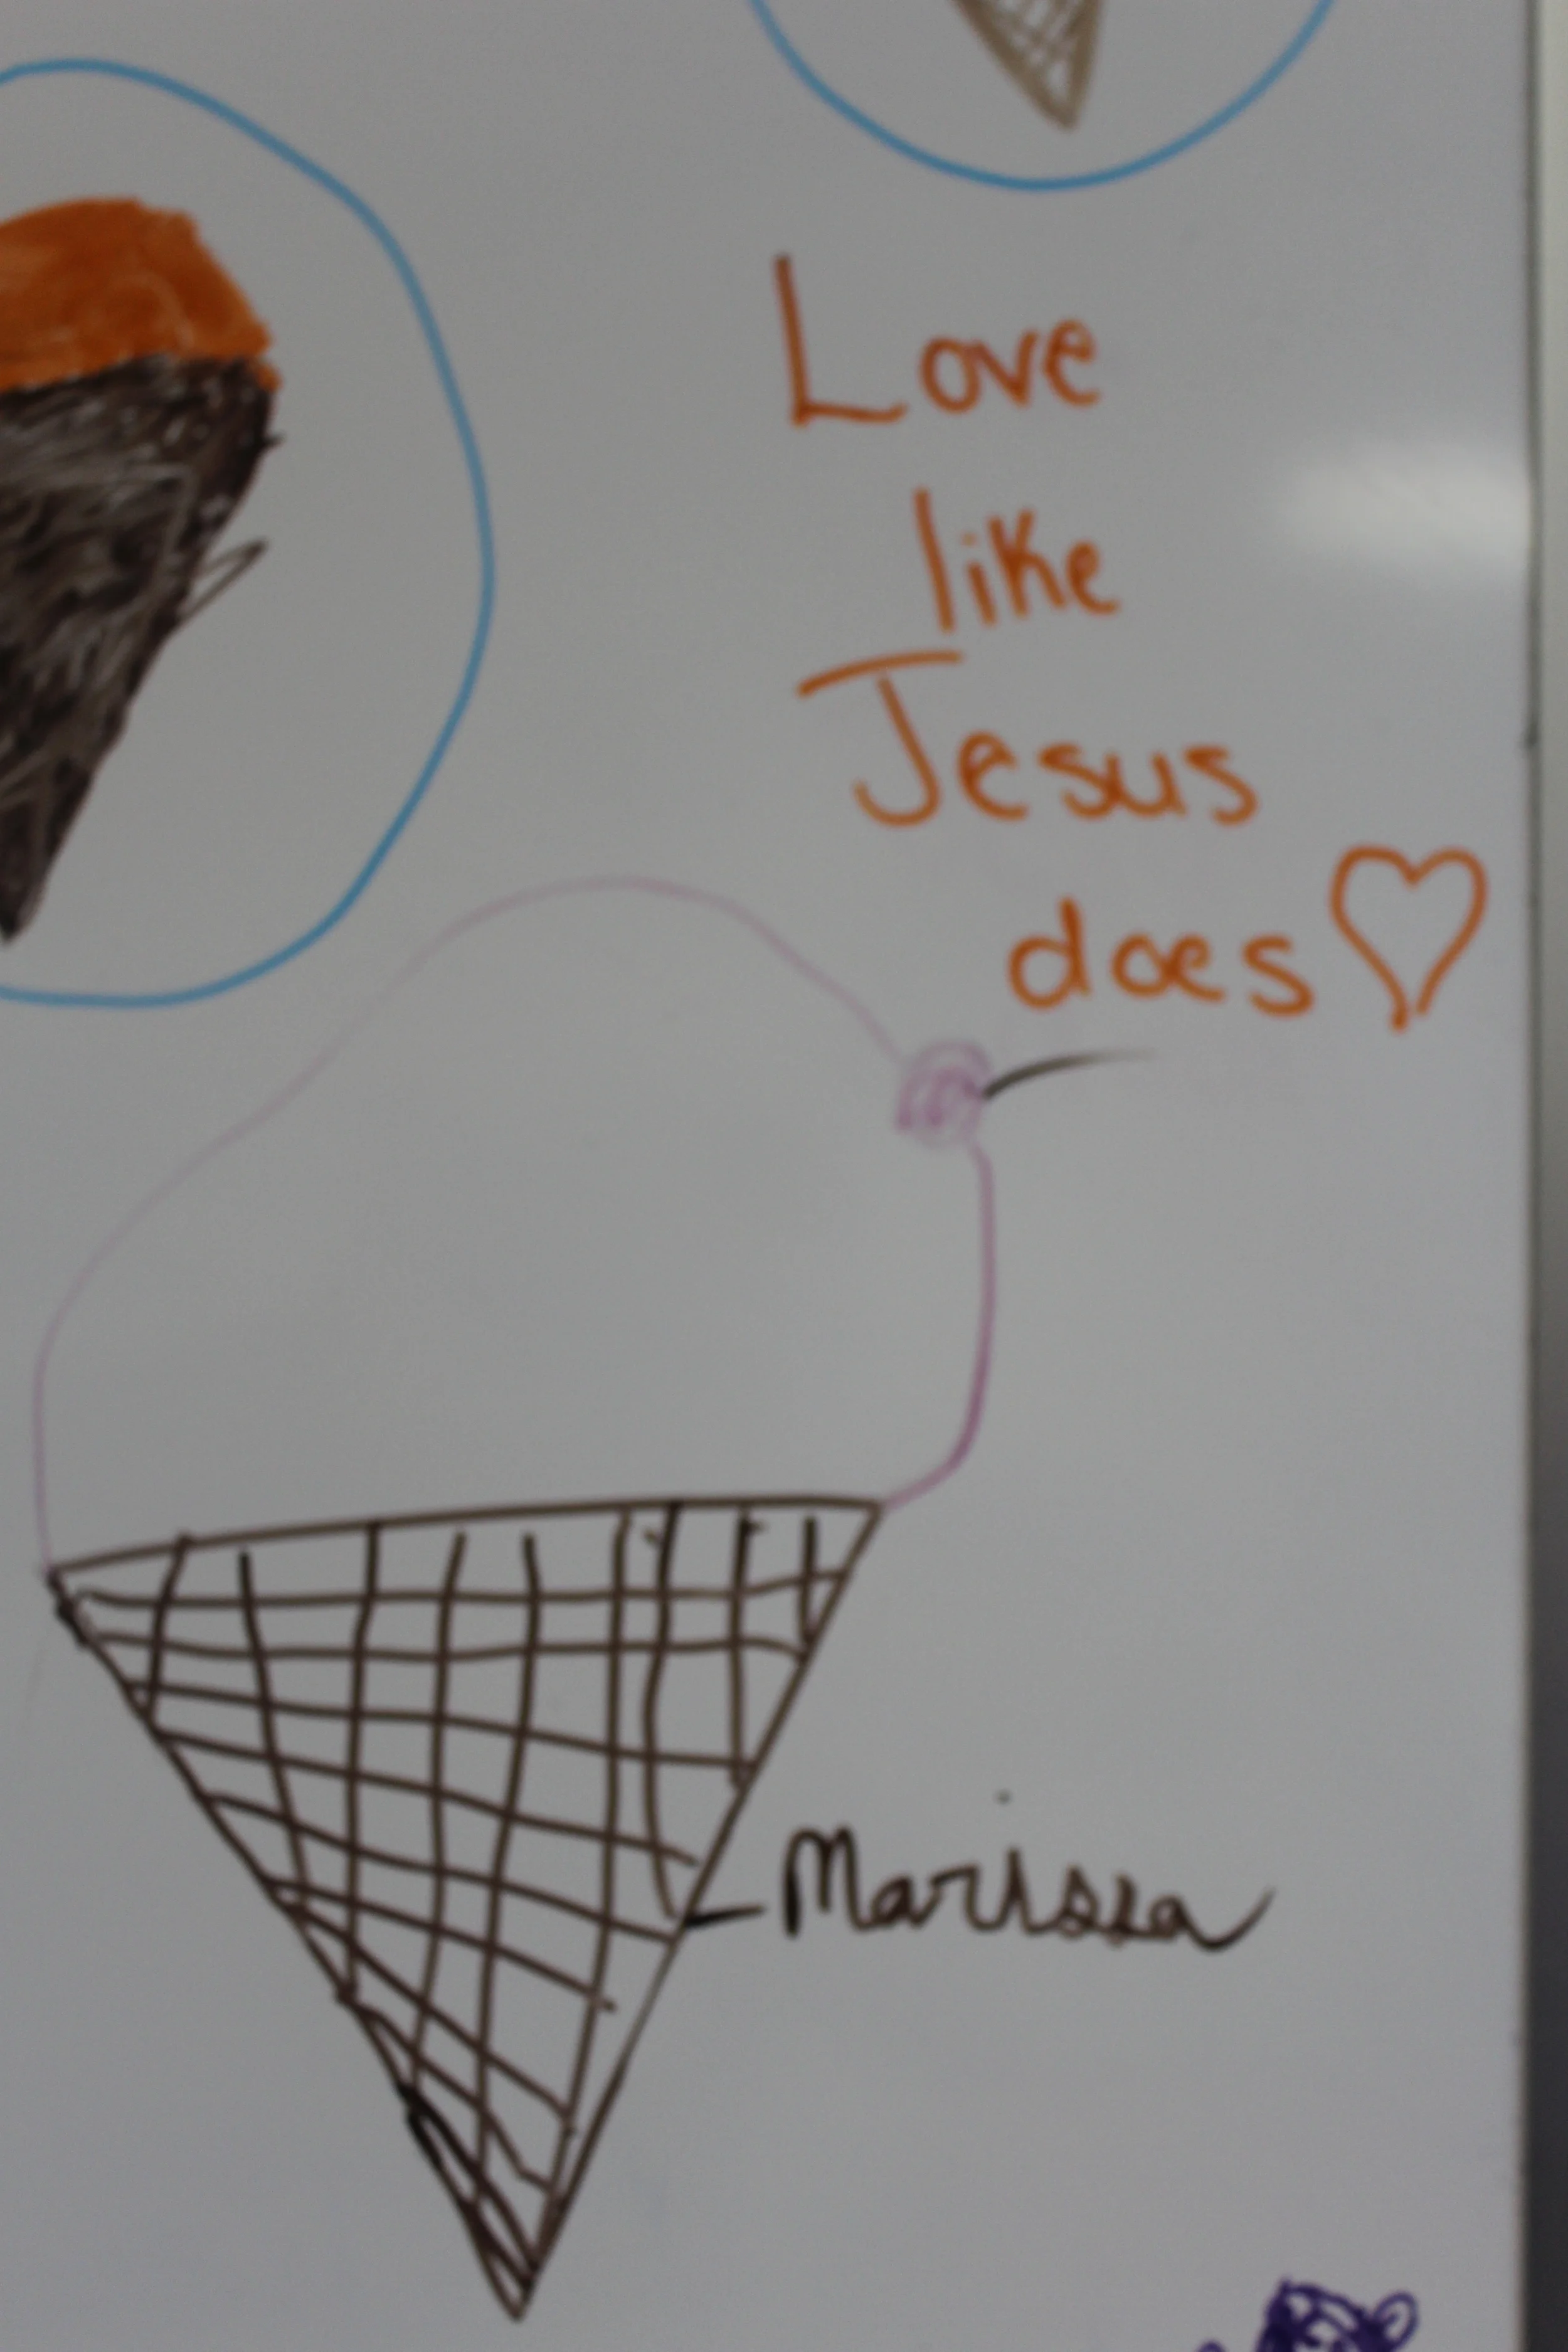 Love
like
Jesus
does
Marissa